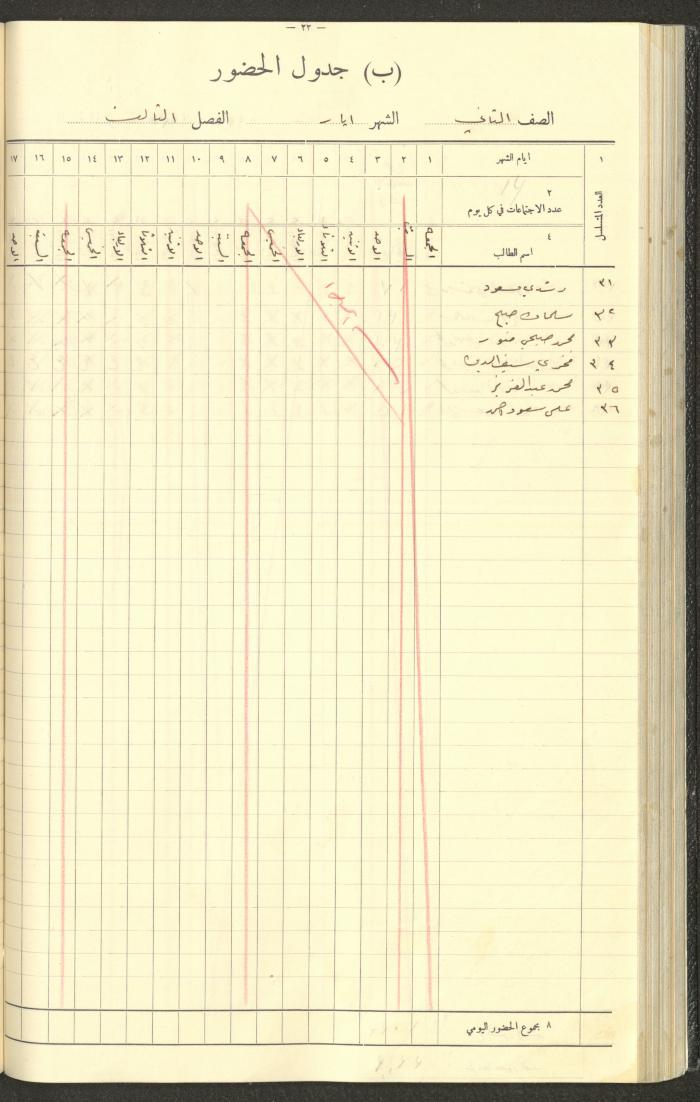 — ٢٢ —
(ب) جدول الحضور
الصف الثاني الشهر ايار الفصل الثالث
١ ايام الشهر ١ ٢ ٣ ٤ ٥ ٦ ٧ ٨ ٩ ١٠ ١١ ١٢ ١٣ ١٤ ١٥ ١٦ ١٧
العدد المتسلسل
٢
عدد الاجتماعات في كل يوم
٤
اسم الطالب
الجمعه السبت الاحد الاثنين الثلاثاء الاربعاء الخميس الجمعه السبت الاحد الاثنين الثلاثاء الاربعاء الخميس الجمعه السبت الاحد
٣١ رشدي مسعود
٣٢ سلمان صبح
٣٣ محمد صبحي
٣٤ فخري سيف الدين
٣٥ محمد عبد العزيز
٣٦ علي سعود
٨ مجموع الحضور اليومي